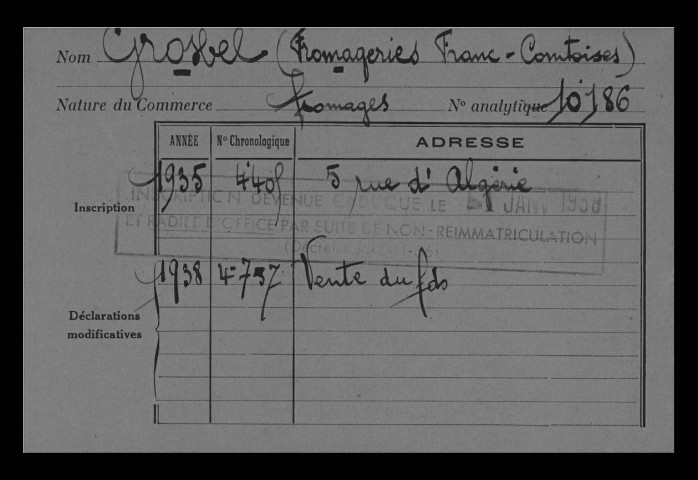 Nom Grosbel (Fromageries Franc-Comtoises)
Nature du Commerce fromages N° analytique 10186
ANNÉE N° Chronologique ADRESSE
Inscription 1935 5 rue d'Algérie
INSCRIPTION DEVENUE CADUQUE LE 1 JANV 1958
ET RADIÉE D'OFFICE PAR SUITE DE NON-REIMMATRICULATION
1938 4737 Vente du fds
Déclarations
modificatives